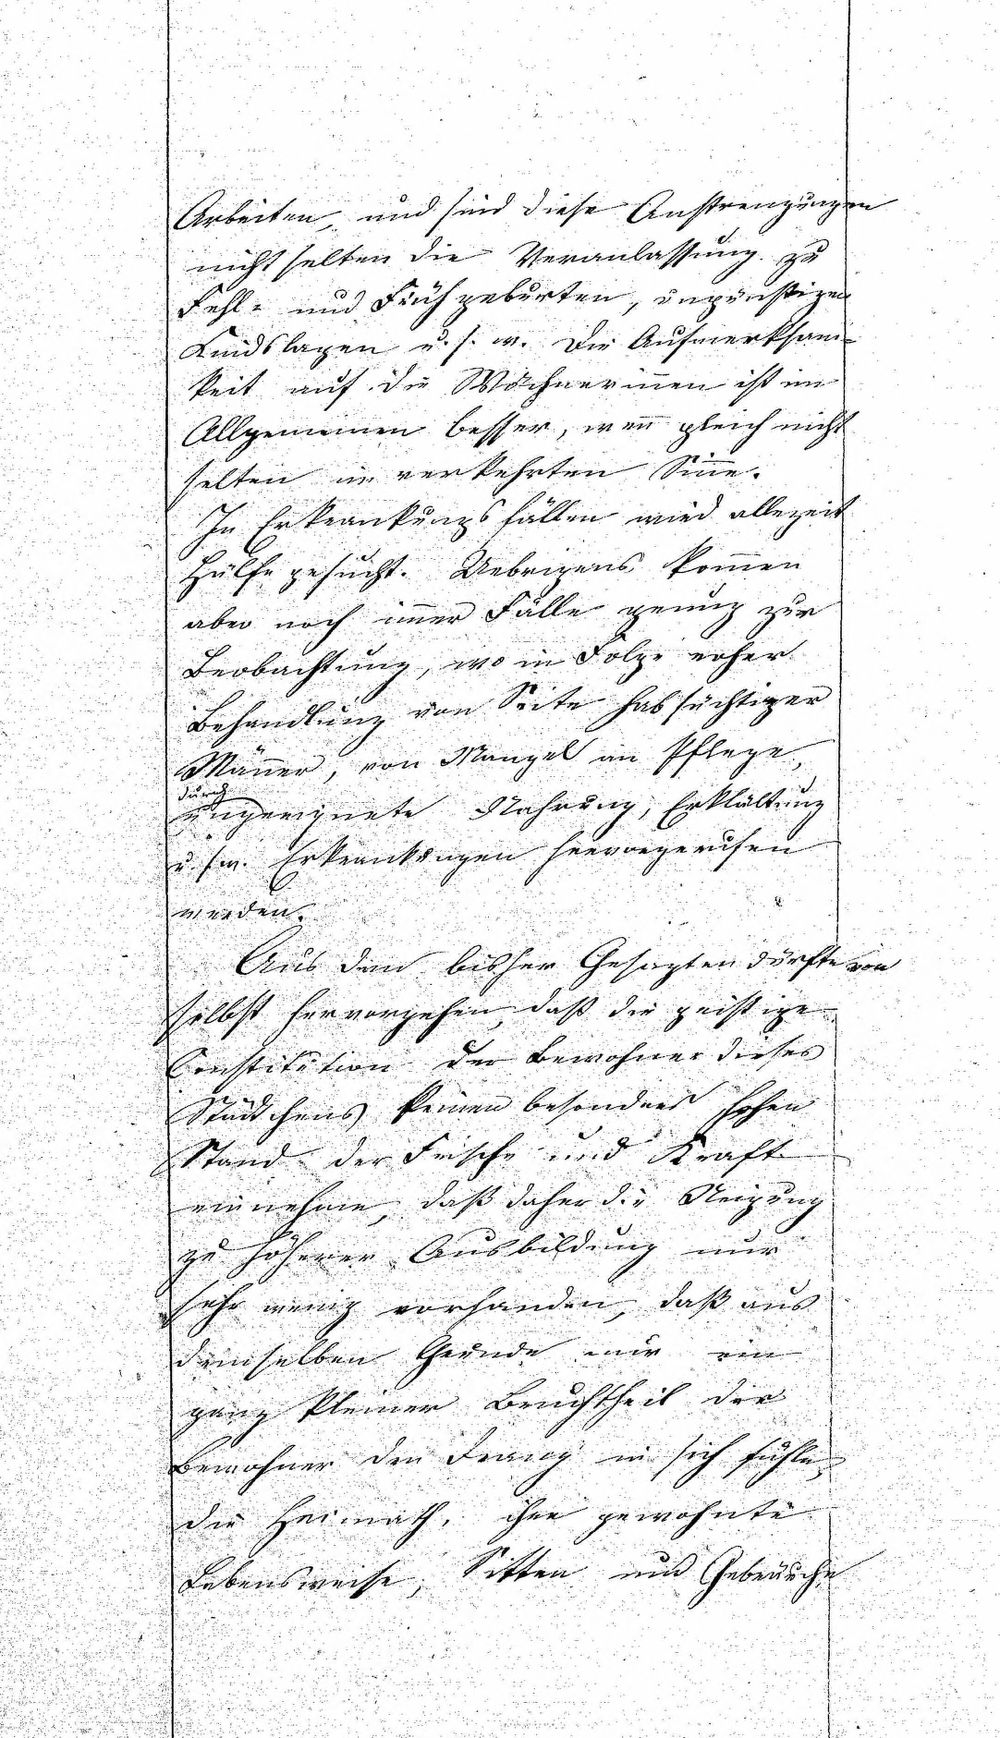 Arbeiten, und sind diese Anstrengungen
nicht selten die Veranlassung zu
Fehl- und Frühgeburten, ungünstigen
Kindslagen u. s. w. Die Aufmerksam-
keit auf die Wöchnerinen ist im
Allgemeinen besser, weñ gleich nicht
selten in verkehrten Siñe.
In Erkrankungsfällen wird allezeit
Hülfe gesucht. Uebrigens kom̄en
aber noch im̄er Fälle genug zur
Beobachtung, wo in Folge roher
Behandlung von Seite habsüchtiger
Mäñer, von Mangel an Pflege,
durch
ungeeignete Nahrung, Erkältung
u. s. w. Erkrankungen hervorgerufen
werden.
Aus dem bisher Gesagten dürfte von
selbst hervorgehen, daß die geistige
Constitution der Bewohner dieses
Städtchens keinen besonders hohen
Stand der Frische und Kraft
einnehme, daß daher die Neigung
zu höherer Ausbildung nur
sehr wenig vorhanden, daß aus
demselben Grunde nur ein
ganz kleiner Bruchtheil der
Bewohner den Drang in sich fühle,
die Heimath, ihre gewohnte
Lebensweise, Sitten und Gebräuche